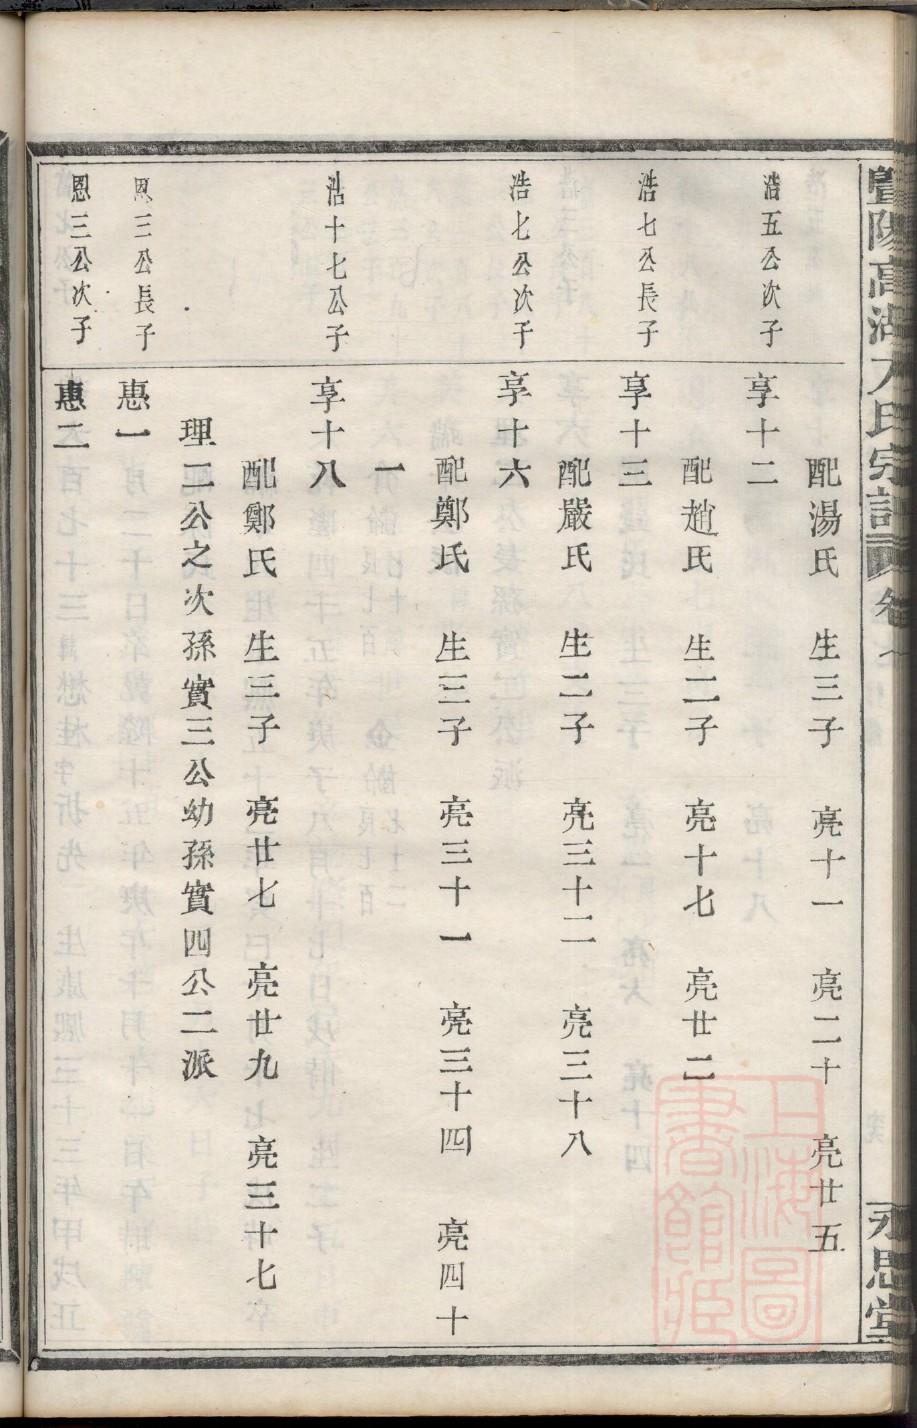 暨陽高湖
氏宗譜
卷一
永思堂
配湯氏 生三子 亮十一 亮二十 亮廿五
浩五公次子
享十二
配趙氏 生二子 亮十七 亮廿二
浩七公長子
享十三
配嚴氏 生二子 亮三十二 亮三十八
浩七公次子
享十六
配鄭氏 生三子 亮三十一 亮三十四 亮四十
一
浩十七公子
享十八
配鄭氏 生三子 亮廿七 亮廿九 亮三十七
理二公之次孫實三公幼孫實四公二派
恩三公長子
惠一
恩三公次子
惠二
上海圖書館藏